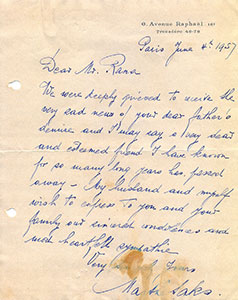 Avenue Raphaël
Paris June 4th 1957
Dear Mr. Rama
We were deeply grieved to receive the
very sad news of your dear father's
demise and I may say a very dear
and esteemed friend I have known
for so many long years has passed
away – My husband and myself
wish to express to you and your
family our sincere condolences and
with heartfelt sympathie
Very Yours